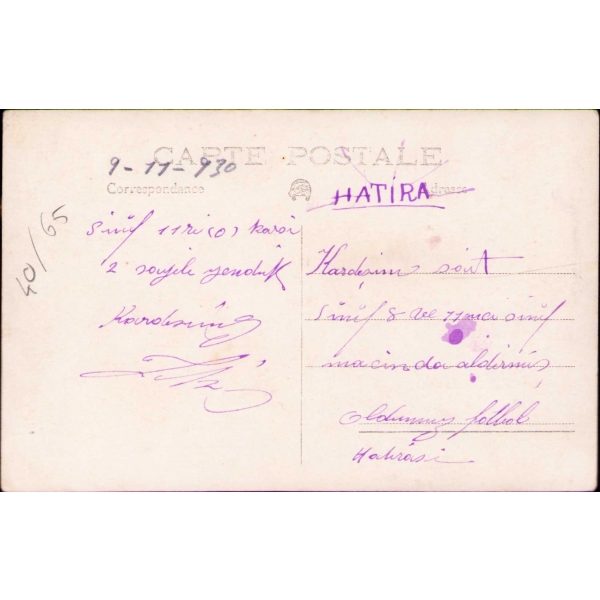 CARTE POSTALE
9-11-930
Correspondance
Adresse
HATIRA
40/65
Sınıf 11 ri (0) karşı
2 sayile yendik
Kardeşin
Kardeşim sait
Sınıf 8 ve 11 ma sınıf
macında aldırmış
oldumuz fotbol
Hatırası